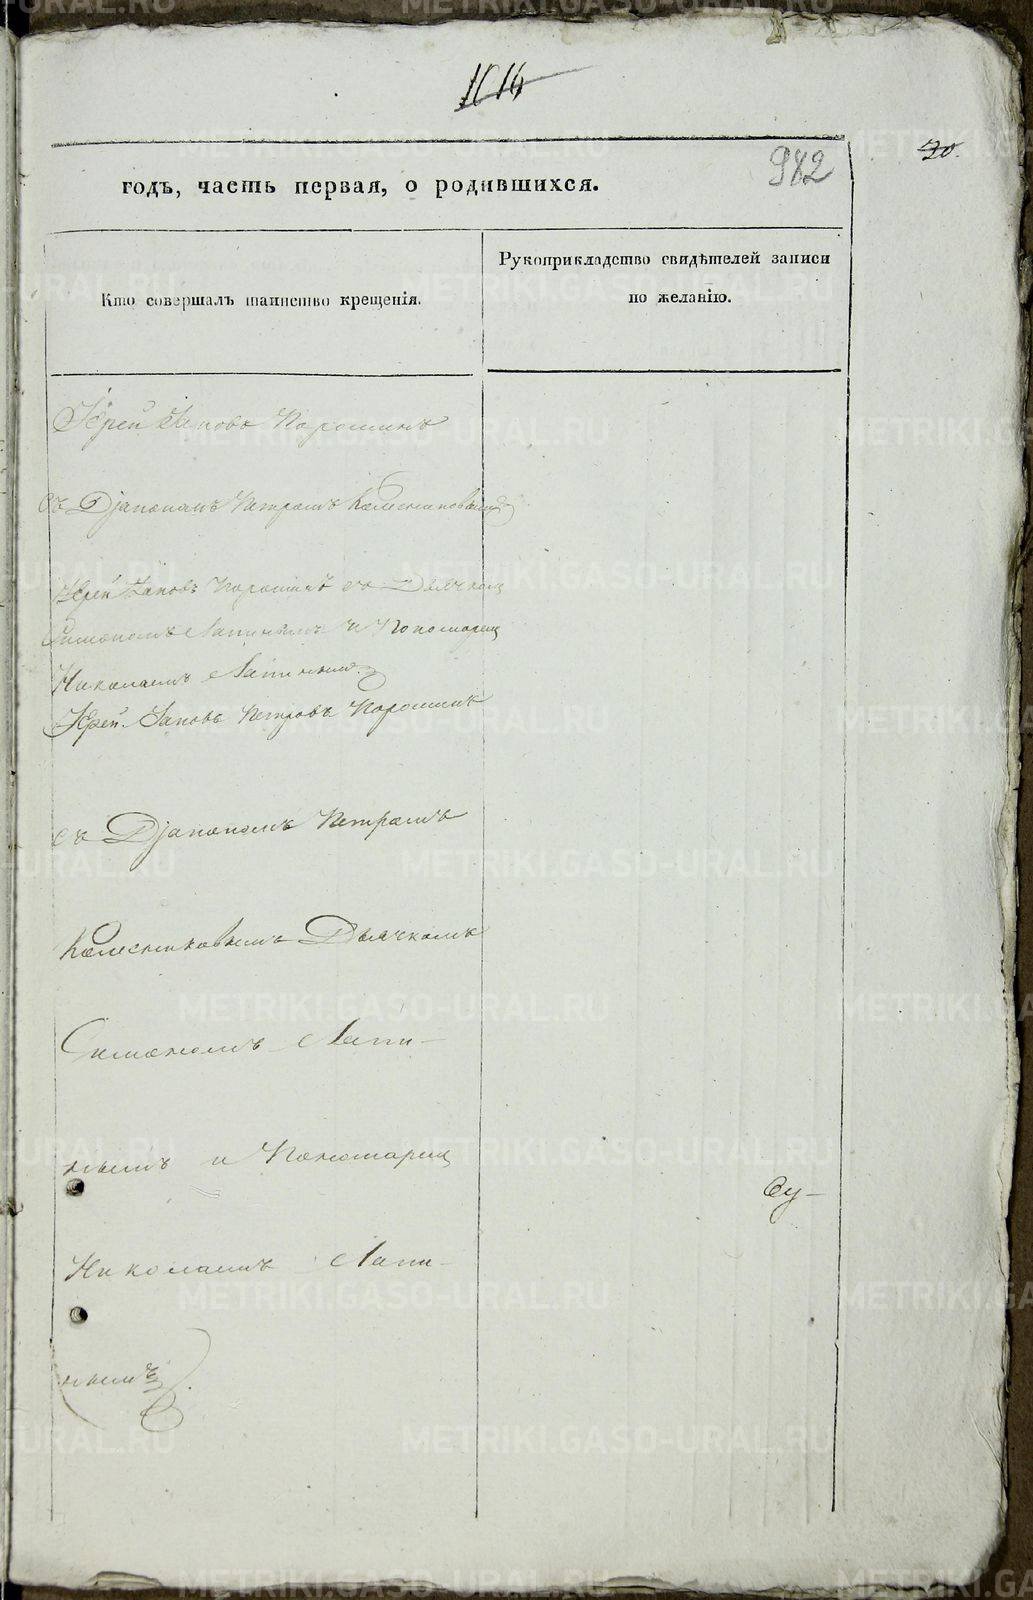 1614
982
20.
годъ, часть первая, о родившихся.
Кто совершалъ таинство крещенія.
Рукоприкладство свидѣтелей записи
по желанію.
Іерей Іаковъ Порошинъ
съ Діякономъ Петромъ Колесниковымъ
Іерей Іаковъ Порошинъ съ Дьячкомъ
Симеономъ Лапинымъ и Пономаремъ
Николаемъ Лапинымъ
Іерей Іаковъ Петровъ Порошинъ
съ Діякономъ Петромъ
Колесниковымъ Дьячкомъ
Симеономъ Лапи-
нымъ и Пономаремъ
Николаемъ Лапи-
нымъ
METRIKI.GASO-URAL.RU